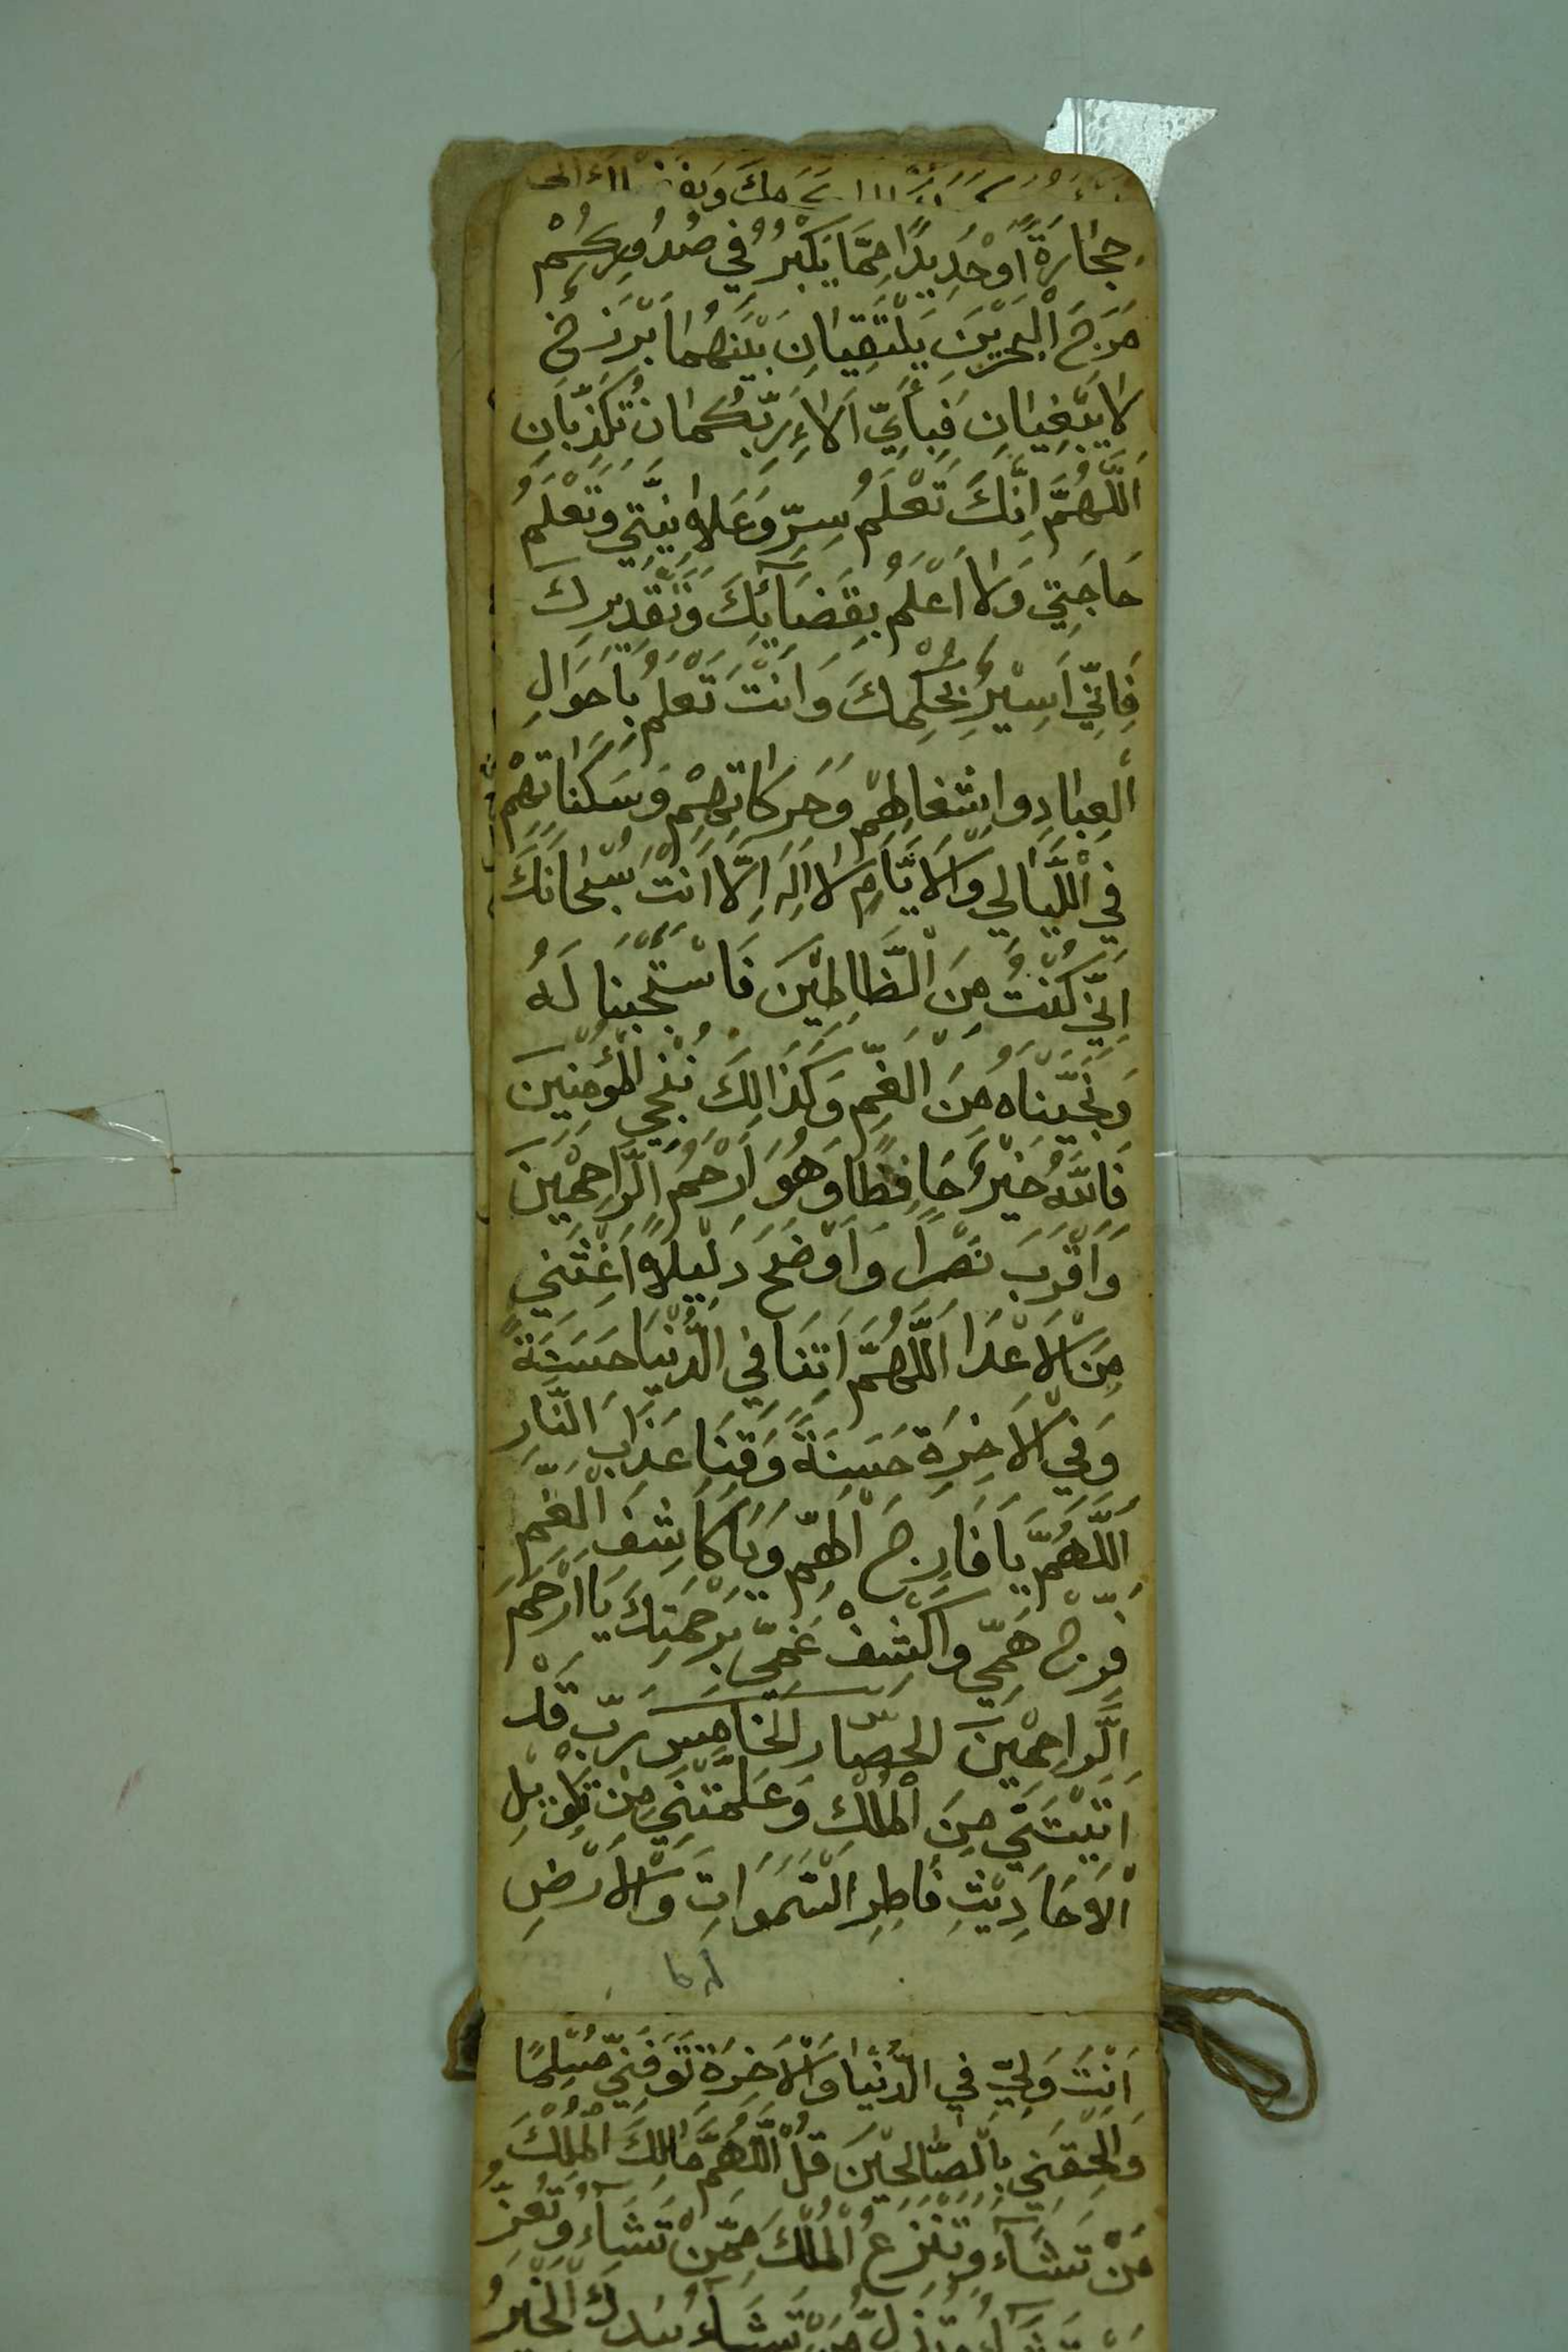 حِجَارَةً اَوْ حَدِيدًا مِمَّا يَكْبُرُ فِي صُدُورِكُمْ
مَرَجَ الْبَحْرَيْنِ يَلْتَقِيَانِ بَيْنَهُمَا بَرْزَخٌ
لَا يَبْغِيَانِ فَبِاَيِّ اٰلَاءِ رَبِّكُمَا تُكَذِّبَانِ
اَللّٰهُمَّ اِنَّكَ تَعْلَمُ سِرِّ وَعَلَانِيَتِي وَتَعْلَمُ
حَاجَتِي وَلَا اَعْلَمُ بِقَضَآئِكَ وَتَقْدِيرِكَ
فَاِنِّي اَسِيْرُ بِحُكْمِكَ وَاَنْتَ تَعْلَمُ بِاَحْوَالِ
الْعِبَادِ وَاشْغَالِهِمْ وَحَرَكَاتِهِمْ وَسَكَنَاتِهِمْ
فِي اللَّيَالِي وَالْاَيَّامِ لَا اِلٰهَ اِلَّا اَنْتَ سُبْحَانَكَ
اِنِّي كُنْتُ مِنَ الظَّالِمِيْنَ فَاسْتَجَبْنَا لَهُ
وَنَجَّيْنَاهُ مِنَ الْغَمِّ وَكَذَالِكَ نُنْجِي الْمُؤْمِنِينَ
فَاللّٰهُ خَيْرٌ حَافِظًا وَهُوَ اَرْحَمُ الرَّاحِمِيْنَ
وَاَقْرَبَ نَصْرًا وَاَوْضَحَ دَلِيْلًا اَغِثْنِي
مِنَ الْاَعْدَا اَللّٰهُمَّ اٰتِنَا فِي الدُّنْيَا حَسَنَةً
وَفِي الْاٰخِرَةِ حَسَنَةً وَقِنَا عَذَابَ النَّارِ
اَللّٰهُمَّ يَا فَارِجَ الْهَمِّ وَيَا كَاشِفَ الْغَمِّ
فَرِّجْ هَمِّي وَاكْشِفْ غَمِّي بِرَحْمَتِكَ يَا اَرْحَمَ
الرَّاحِمِيْنَ الحصار الخامس رَبِّ قَدْ
اٰتَيْتَنِي مِنَ الْمُلْكِ وَعَلَّمْتَنِي مِنْ تَاْوِيْلِ
الْاَحَادِيْثِ فَاطِرَ السَّمٰوَاتِ وَالْاَرْضِ
اَنْتَ وَلِيِّ فِي الدُّنْيَا وَالْاٰخِرَةِ تَوَفَّنِي مُسْلِمًا
وَاَلْحِقْنِي بِالصَّالِحِيْنَ قُلِ اللّٰهُمَّ مَالِكَ الْمُلْكِ
مَنْ تَشَآءُ وَتَنْزِعُ الْمُلْكَ مِمَّنْ تَشَآءُ وَتُعِزُّ